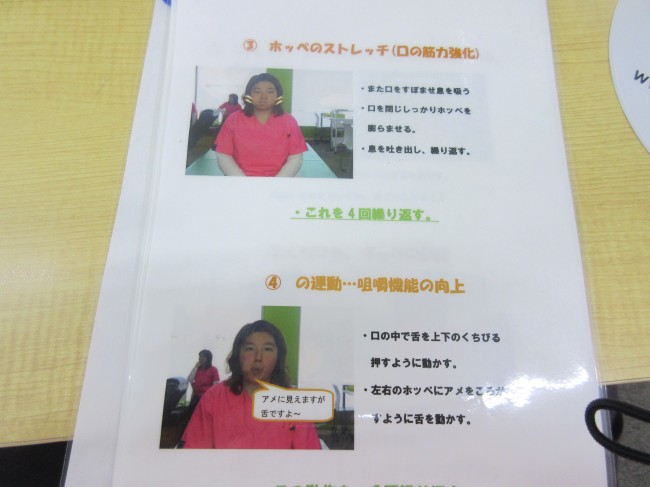 ③ ホッペのストレッチ(口の筋力強化)
・また口をすぼませ息を吸う
・口を閉じしっかりホッペを
膨らませる。
・息を吐き出し、繰り返す。
・これを4回繰り返す。
④ の運動…咀嚼機能の向上
・口の中で舌を上下のくちびる
押すように動かす。
・左右のホッペにアメをころが
すように舌を動かす。
アメに見えますが
舌ですよ～